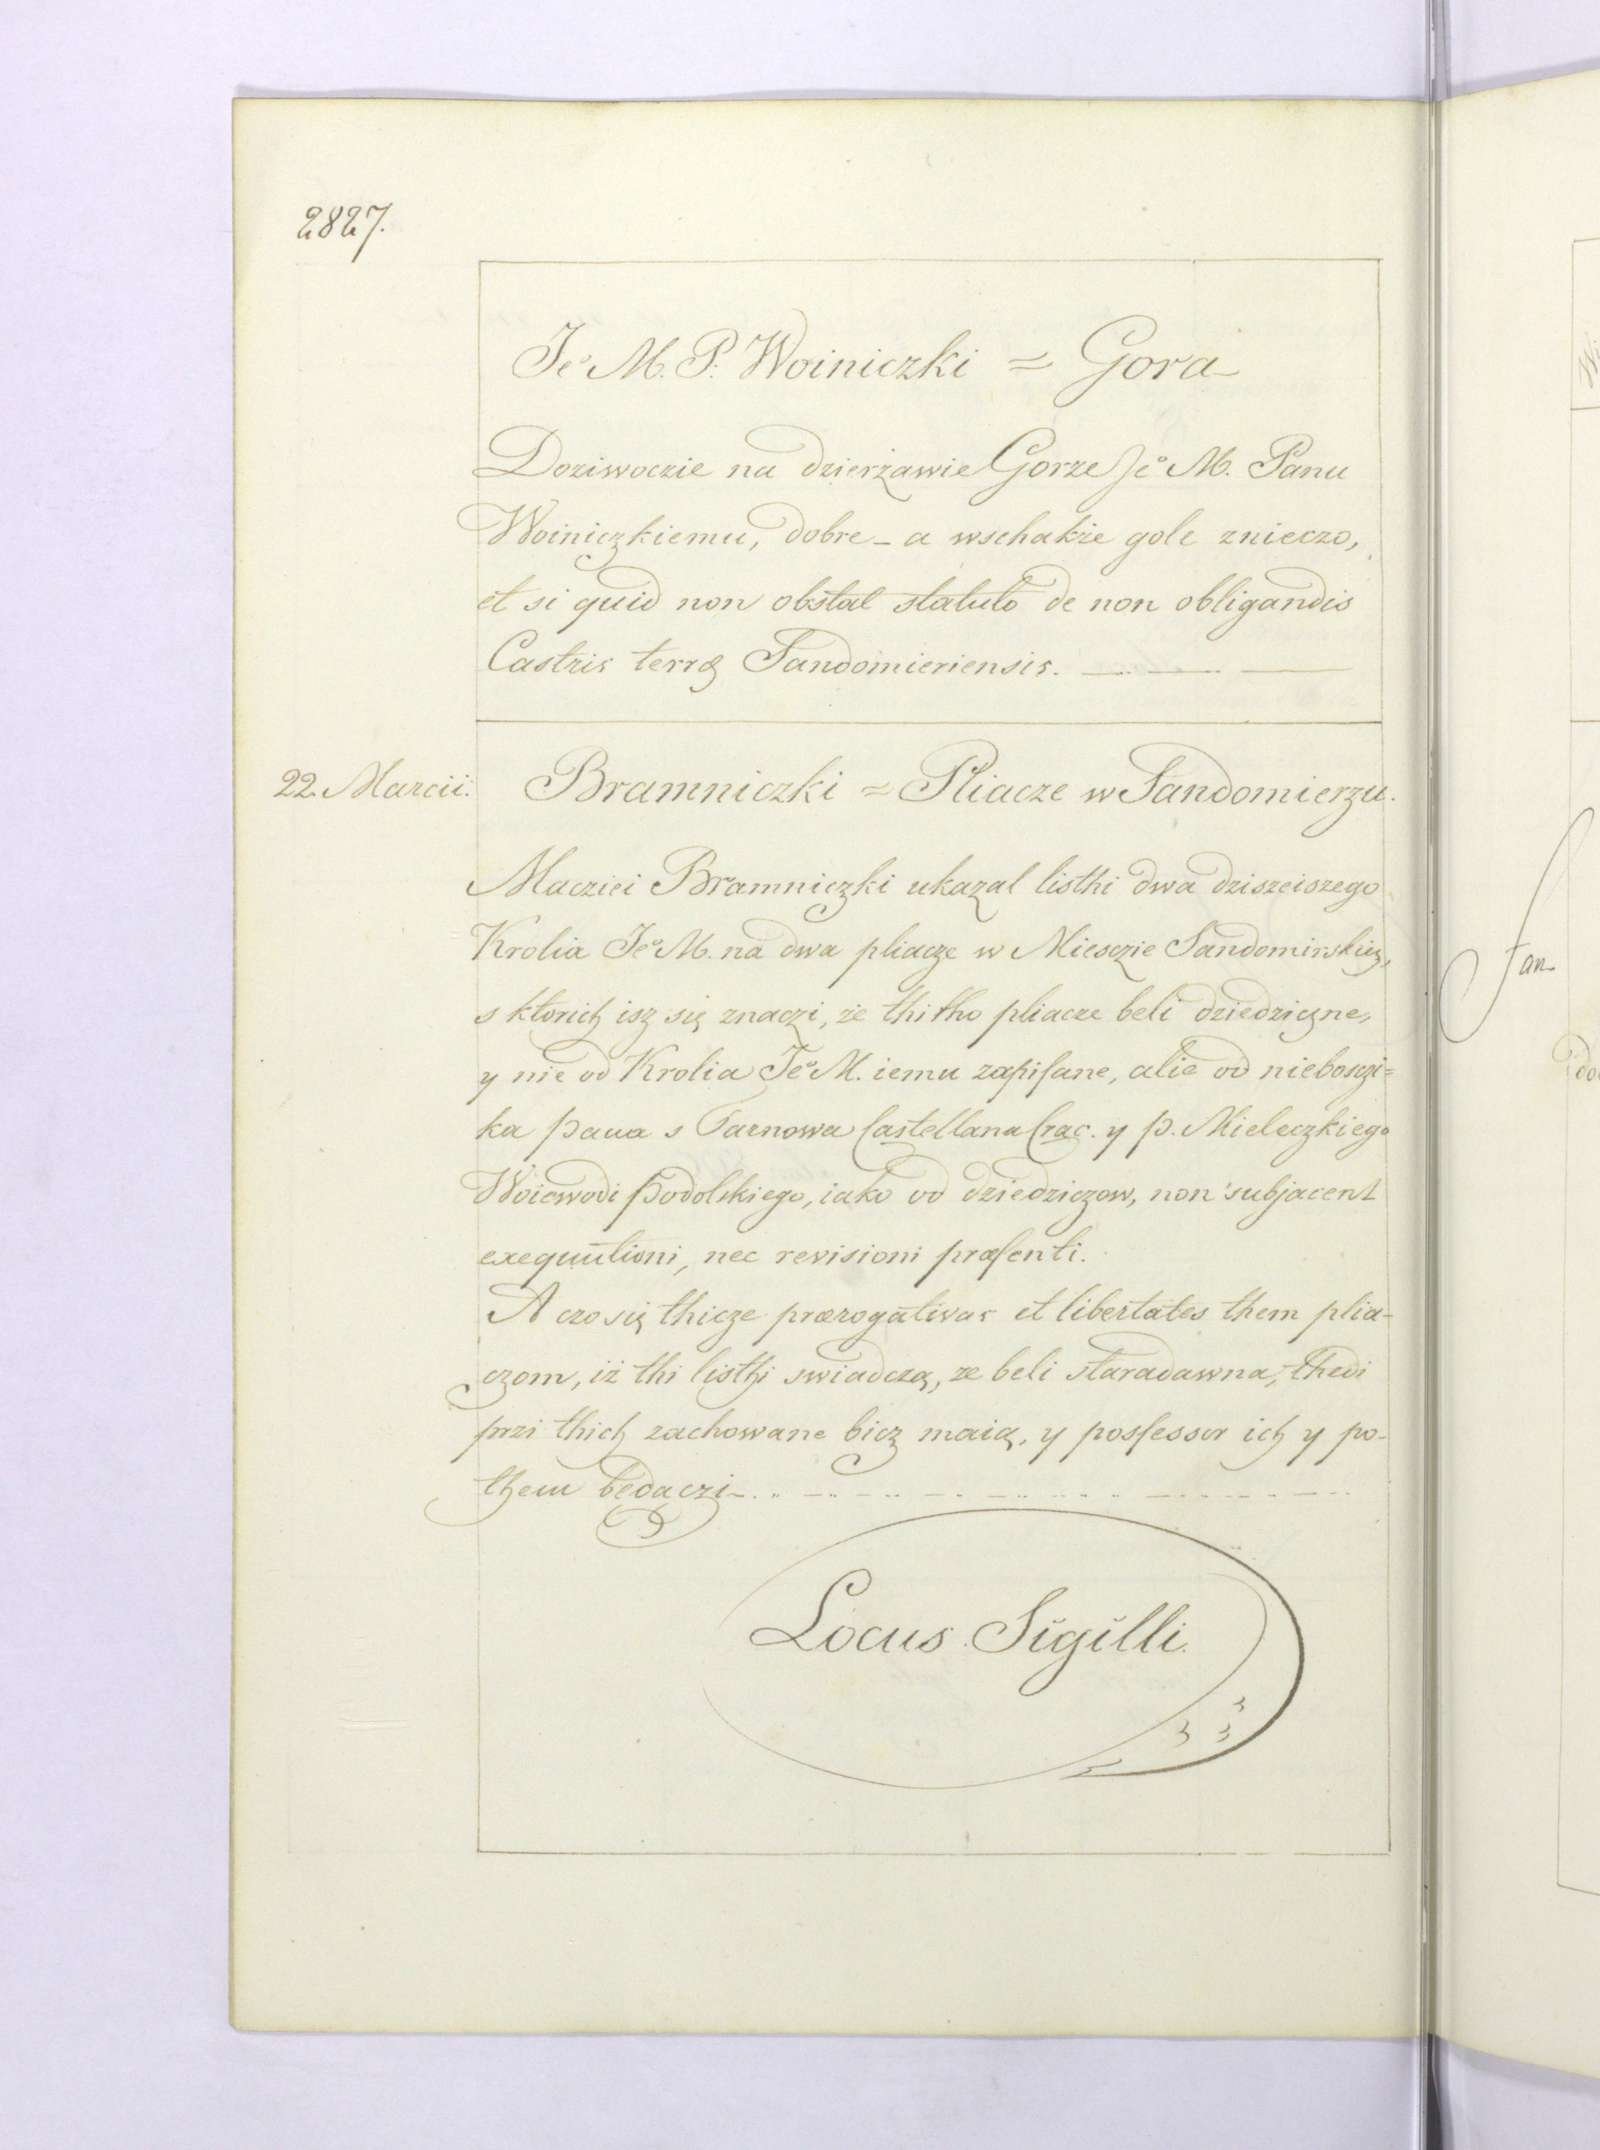 2827.
Je° M. P. Woiniczki = Gora
Doziwoczie na dzierżawie Gorze Je° M. Panu
Woiniczkiemu, dobre – a wschakże gole znieczo,
et si quid non obstat statuto de non obligandis
Castris terræ Sandomieriensis.
22. Marcii.
Bramniczki = Pliacze w Sandomierzu.
Macziei Bramniczki ukazal listhi dwa dziszeiszego
Krolia Je° M. na dwa pliacze w Miesczie Sandomirskiez,
s ktorich isz się znaczi, że thitho pliacze beli dziedziczne,
y nie od Krolia Je° M. iemu zapisane, alie od nieboszi=
ka pana s Tarnowa Castellana Crac. y p. Mieleczkiego
Woiewodi Podolskiego, iako od dziedziczow, non subjacent
exequutioni, nec revisioni præsenti.
A czo się thicze prærogativas et libertates them plia-
czom, iż thi listhi swiadczą, ze beli staradawna, thedi
przi thich zachowane bicz maią, y possessor ich y po-
them bedaczi
Locus Sigilli.
Jan